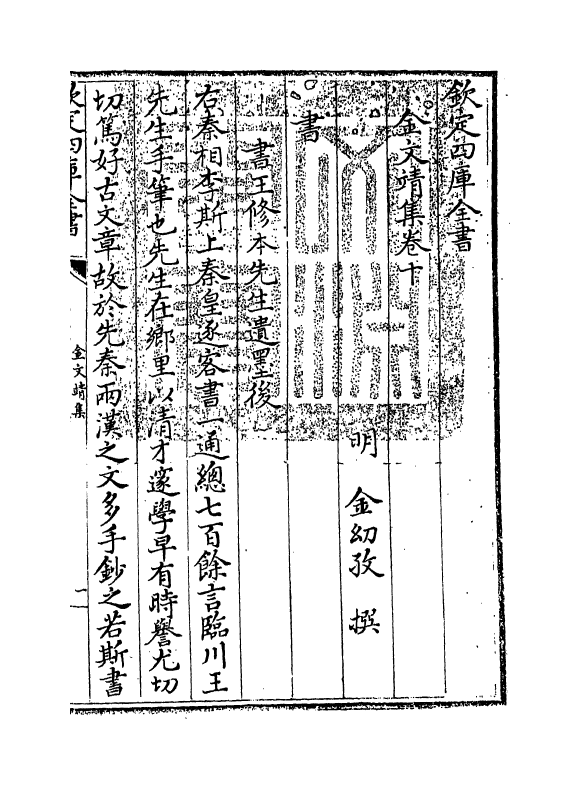 欽定四庫全書
金文靖集卷十
明 金幼孜 撰
書
書王修本先生遺墨後
右秦相李斯上秦皇逐客書一通總七百餘言臨川王
先生手筆也先生在鄉里以清才邃學早有時譽尤切
切篤好古文章故於先秦兩漢之文多手鈔之若斯書
欽定四庫全書
金文靖集
一